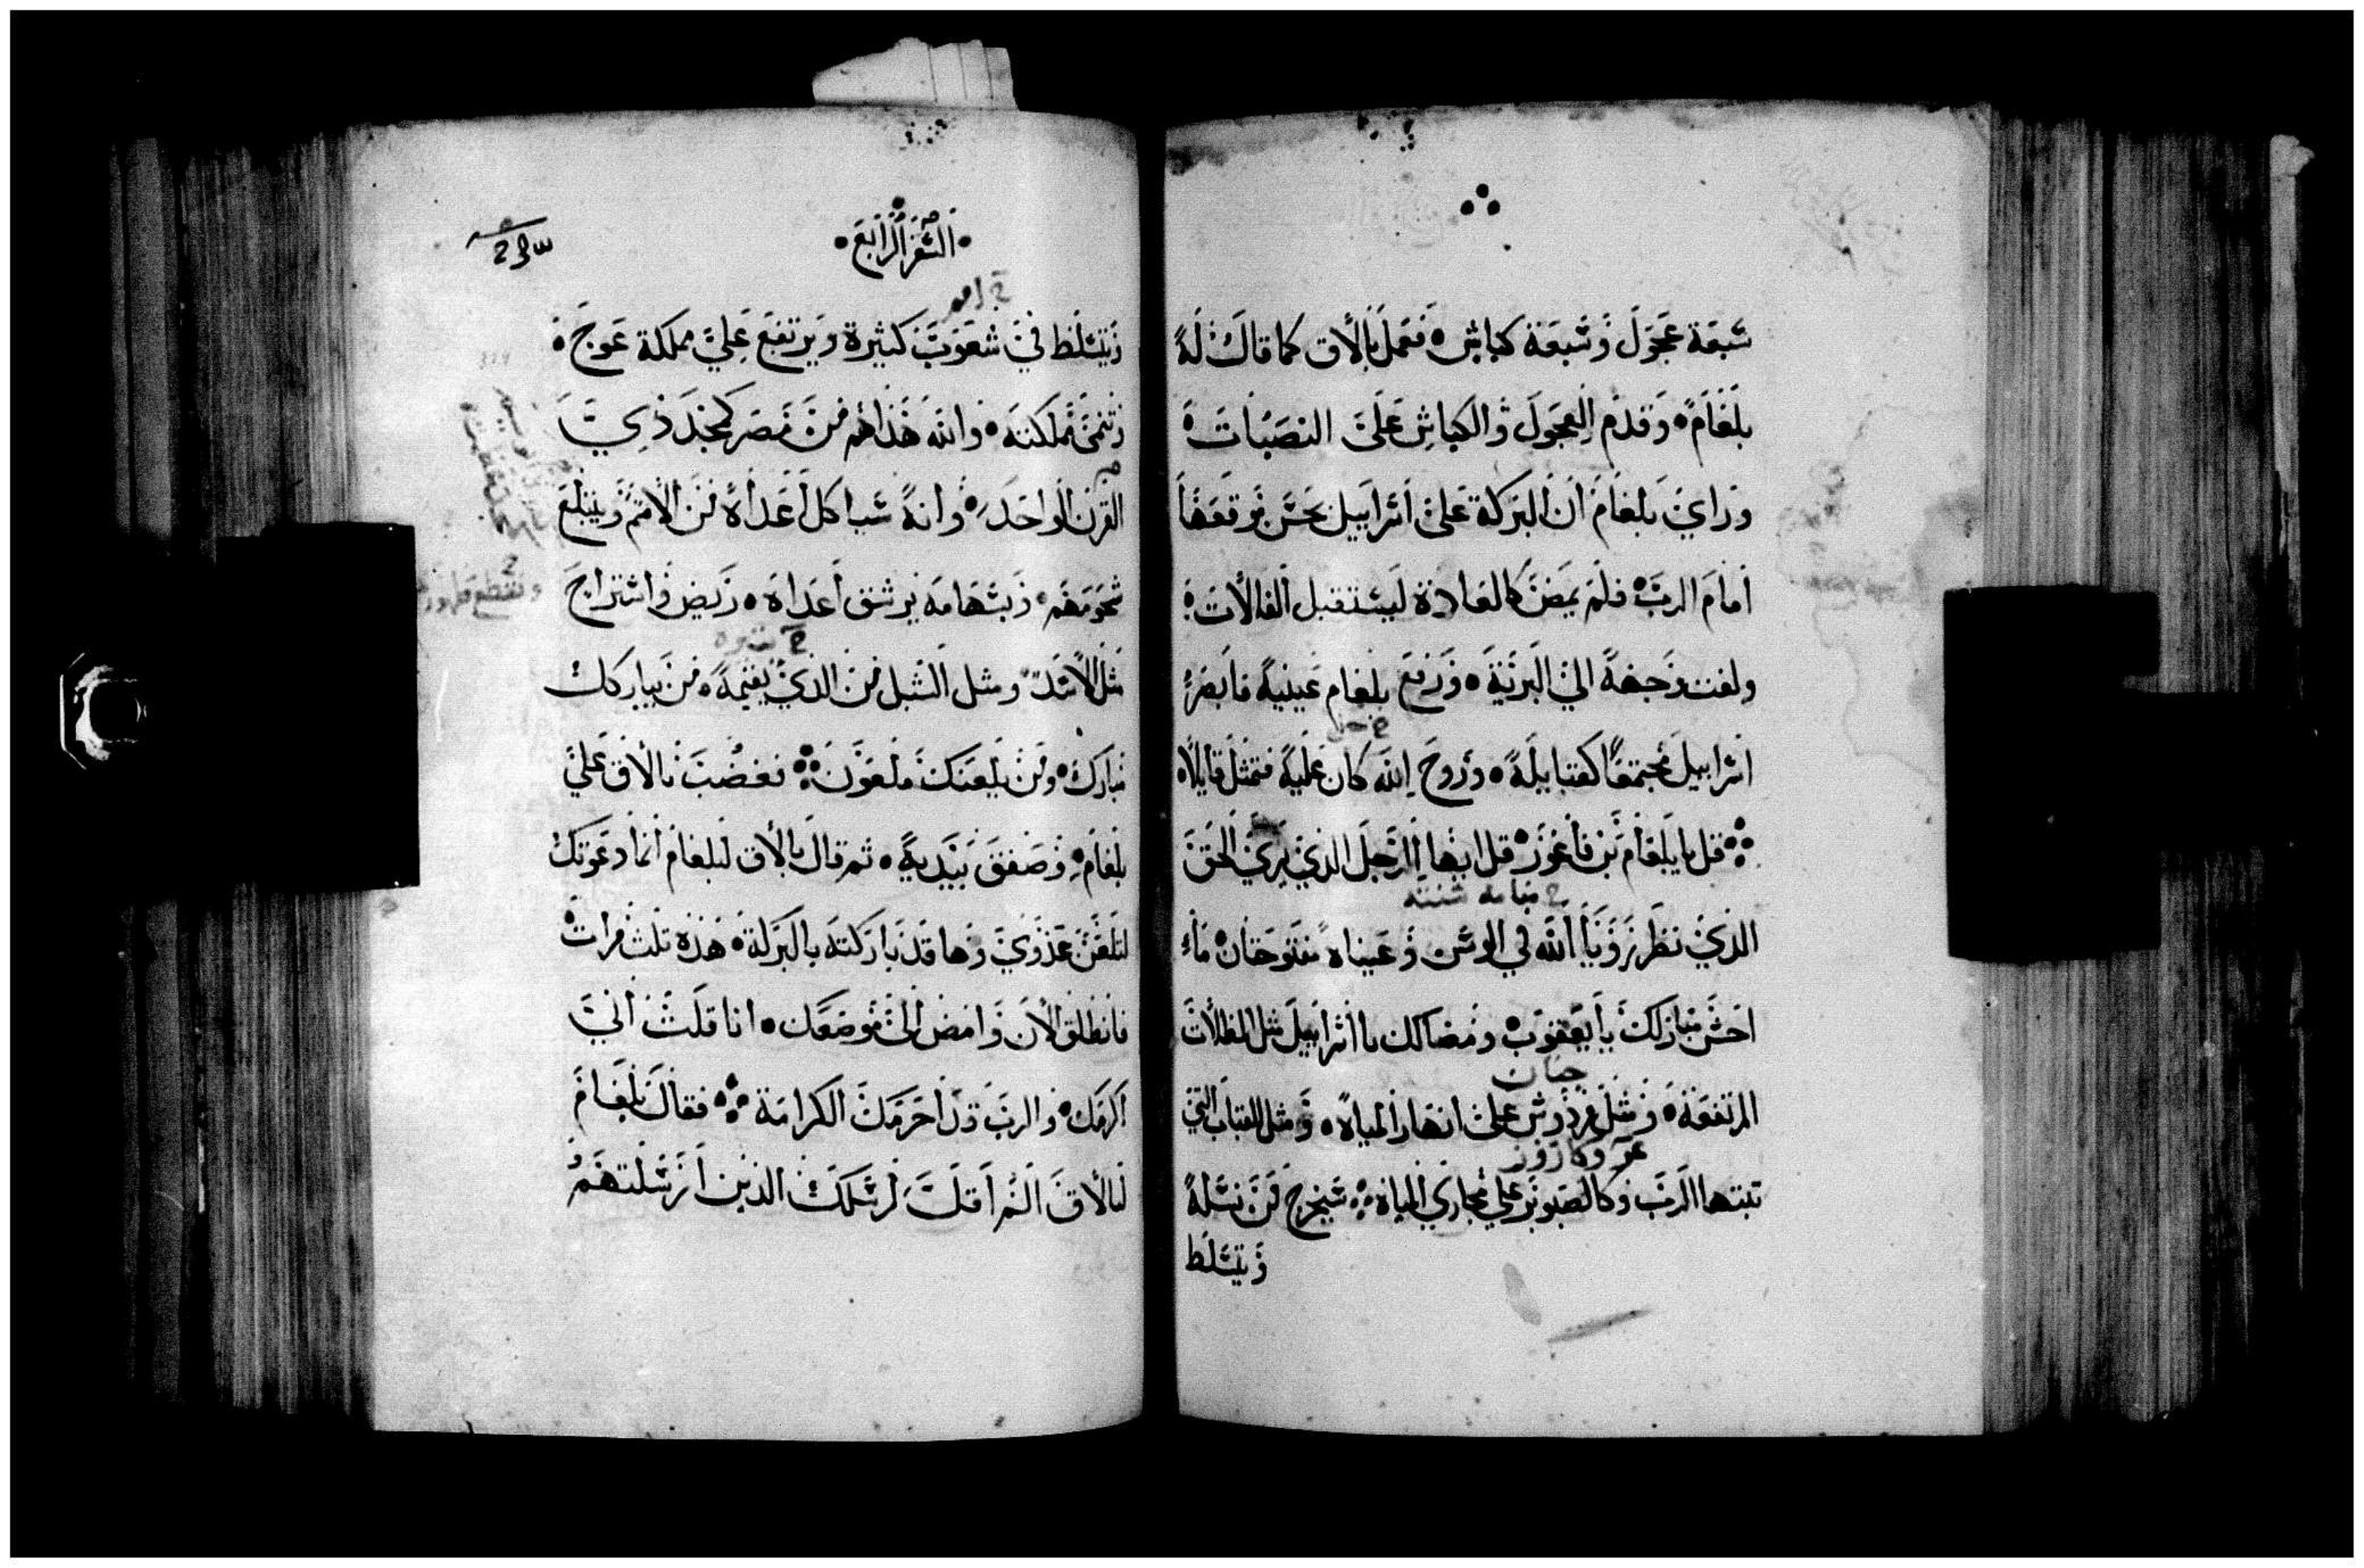 سبعة عجول وسبعة كباش فعمل بالاق كما قال له
بلعام وقدم العجول والكباش على النصبات
وراي بلعام ان البركة على اسراييل بحسن موقعها
امام الرب فلم يمض كالعادة ليستقبل الفالات
ولفت وجهه الي البرية ورفع بلعام عينيه فابصر
اسراييل مجتمعا كقبايله وروح الله كان عليه فتمثل قايلا
قل يا بلعام بن فاعور قل ايها الرجل الذي يري الحق
الذي نظر رويا الله في الوسن وعيناه مفتوحتان ما
احسن مباركك يا يعقوب ومضالك يا اسراييل مثل المظلات
جنان
المرتفعة ومثل فردوس على انهار المياه ومثل القباب التي
تبتها الرب وكالصنوبر علي مجاري المياه سيخرج من نسله
ويتسلط
السفر الرابع
ويتسلط في شعوب كثيرة ويرتفع علي مملكة عوج
وتنمي مملكته والله هذاهم من مصر كمجد ذي
القرن الواحد وانه سيا كل اعداه من الامم ويبلع
شحومهم وبسهامه يرشق اعداه ربض واستراح
مثل الاسد ومثل الشبل فمن الذي يقيمه من يباركك
مبارك ومن يلعنك ملعون فغضب بالاق علي
بلعام وصفق بيديه ثم قال بالاق لبلعام انما دعوتك
لتلعن عدوي وها قد باركته بالبركة هذه ثلث مرات
فانطلق الان وامض الى موضعك انا قلت اني
اكرمك والرب قد احرمك الكرامة فقال بلعام
لبالاق الم اقل لرسلك الذين ارسلتهم